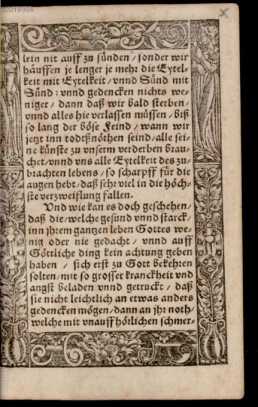 lein nit auff zu sünden / sonder wir
häuffen je lenger je mehr die Eytel-
keit mit Eytelkeit / vnnd Sünd mit
Sünd: vnnd gedencken nichts we-
niger / dann daß wir bald sterben /
vnnd alles hie verlassen müssen / biß
so lang der böse Feind / wann wir
jetzt inn todtßnöthen seind / alle sei-
ne künste zu vnserm verderben brau-
chet / vnnd vns alle Eytelkeit des zu-
brachten lebens / so scharpff für die
augen hebt / daß sehr viel in die höch-
ste verzweiflung fallen.
Vnd wie kan es doch geschehen /
daß die / welche gesund vnnd starck /
inn jhrem gantzen leben Gottes we-
nig oder nie gedacht / vnnd auff
Göttliche ding kein achtung geben
haben / sich erst zu Gott bekehren
solten / mit so grosser kranckheit vnd
angst beladen vnnd getruckt / daß
sie nicht leichtlich an etwas anders
gedencken mögen / dann an jhr noth /
welche mit vnauff hörlichen schmer-